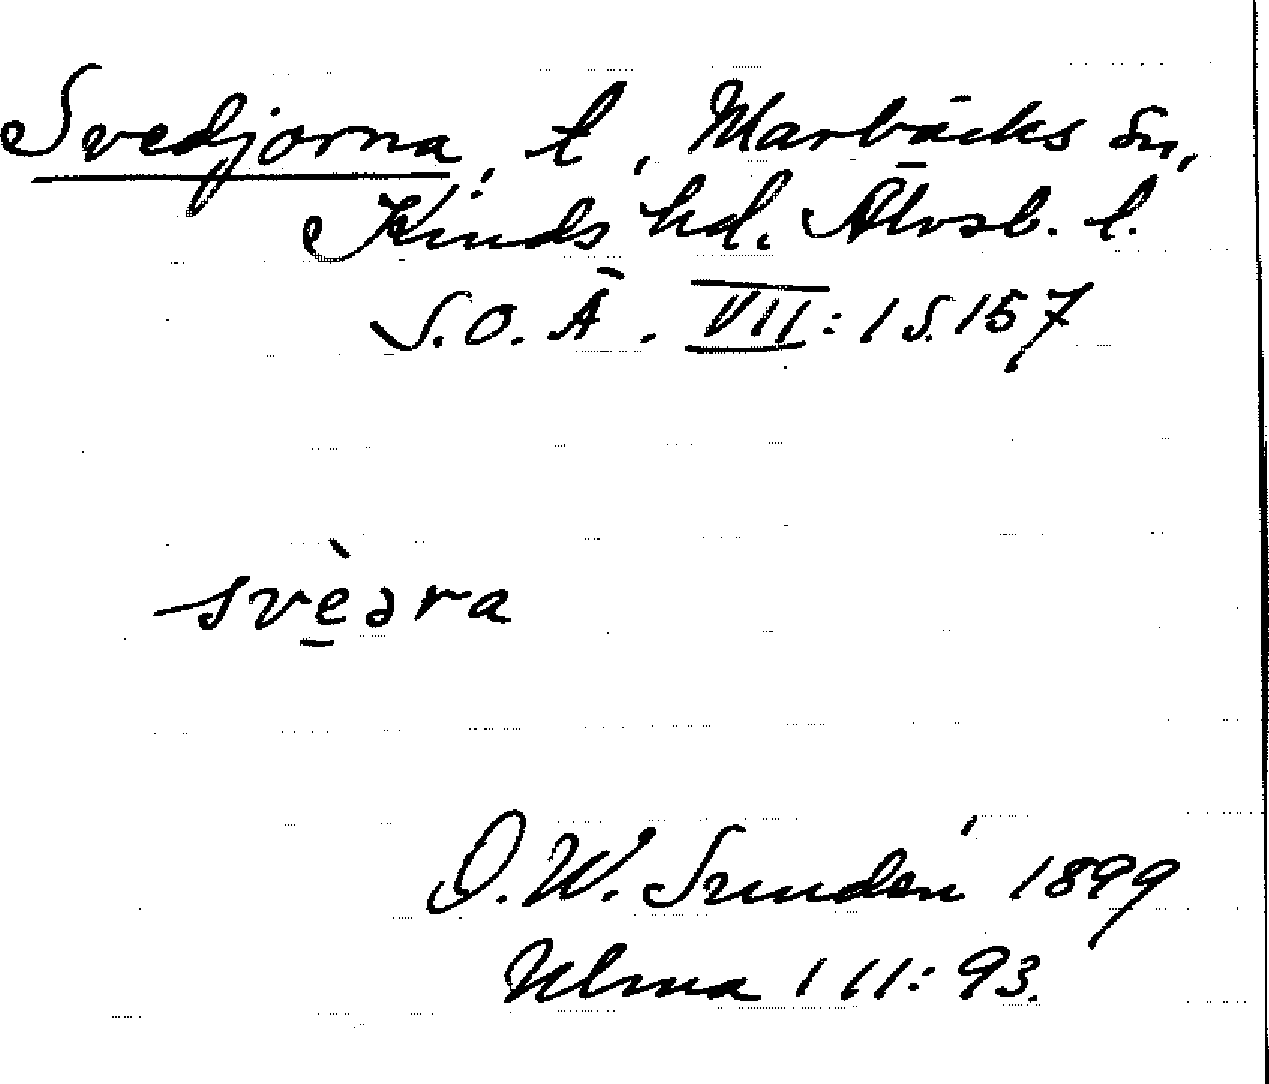 Svedjorna, t, Marbäcks sn,
Kinds hd. Älvsb. l.
S.O.Ä. VII: 1 S. 157
svèəra
D.W. Sundén 1899
Ulma 111:93.